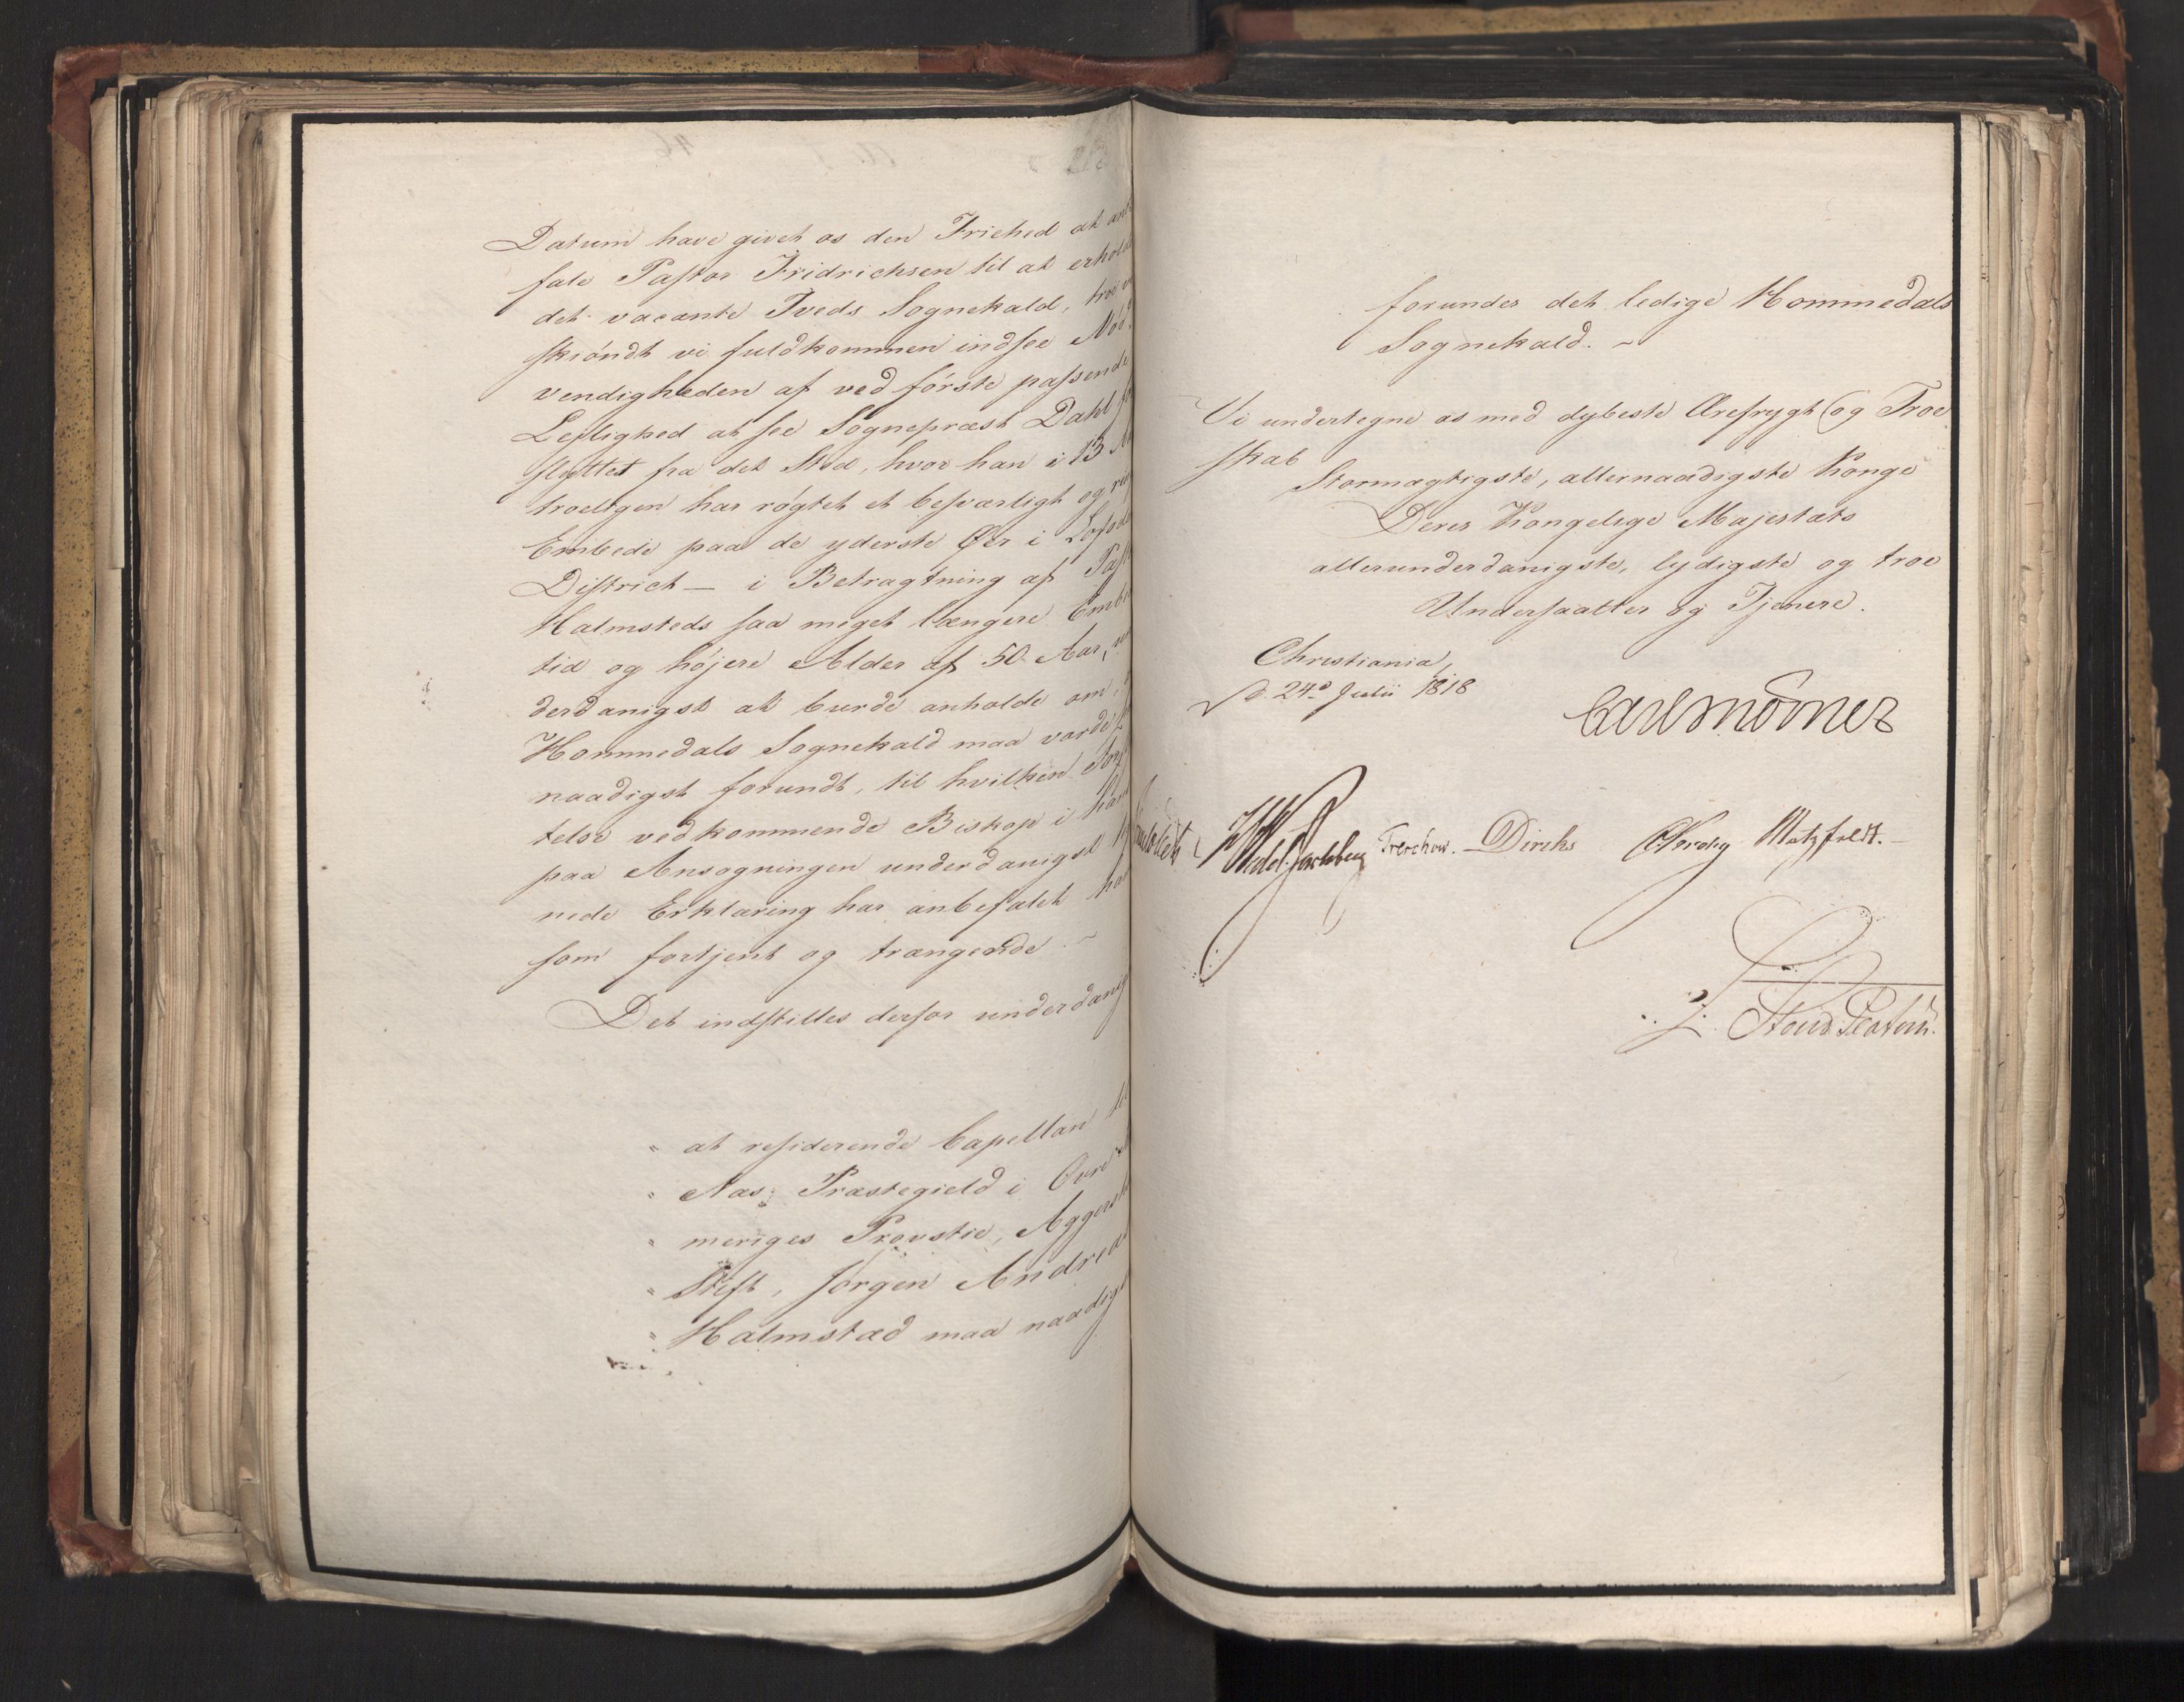 Datum have givet os den Friehed at anbe
fale Pastor Fridrichsen til at erholde
det vacante Tveds Sognekald, troe vi
skiöndt vi fuldkommen indsee Nöd
vendigheden af ved förste passende
Lejlighed at see Sognepræst Dahl for
flyttet fra det Sted, hvor han i 13 Aar
troeligen har røgtet et besværligt og
Embede paa de yderste Øer i Lofodens
District — i Betragtning af Pastor
Halmsteds saa meget længere Embeds
tid og højere Alder af 50 Aar, un
derdanigst at burde anholde om
Hommedals Sognekald maa vorde
naadigst forundt, til hvilken
telse vedkommende Biskop i
paa Ansøgningen underdanigst
nede Erklæring har anbefalet ham
som fortjent og trængende. ~
Det indstilles derfor underdanig
" at residerende Capellan til
" Næs Præstegield i Övre
" meriges Provstie, Aggers
" Stift, Jørgen Andreas
" Halmstad maa naadigst
forundes det ledige Hommedals
Sognekald. ~
Vi undertegne os med dybeste Ærefrygt og Troe
skab
Stormægtigste, allernaadigste Konge
Deres Kongelige Majestæts
allerunderdanigste, lydigste og troe
Undersaatter og Tjenere.
Christiania,
d. 24d Julii 1818
Carl Mörner
Wedel Jarlsberg Treschow. Diriks CKrohg Motzfeldt.